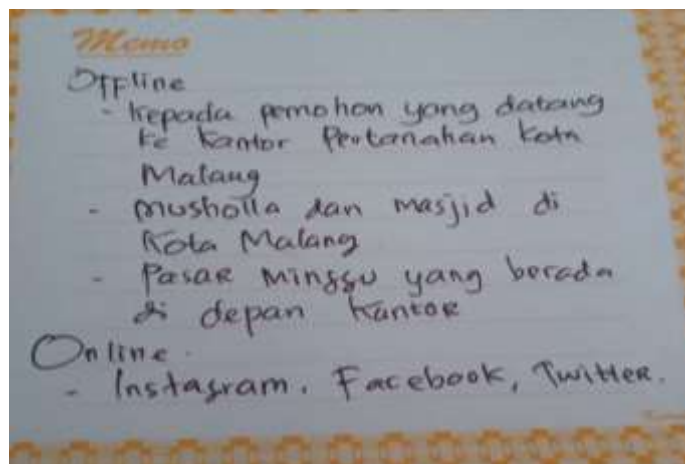 Memo
Offline
- kepada pemohon yang datang
ke kantor Pertanahan Kota
Malang
- musholla dan masjid di
Kota Malang
- Pasar Minggu yang berada
di depan kantor
Online.
- Instagram, Facebook, Twitter.